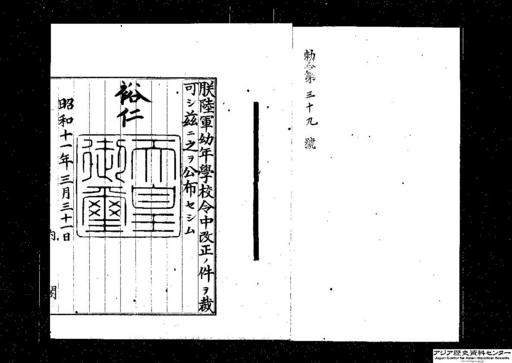 勅令第三十九號
朕陸軍幼年學校令中改正ノ件ヲ裁
可シ茲ニ之ヲ公布セシム
裕仁
天皇
御璽
昭和十一年三月三十一日
内閣
アジア歴史資料センター
Japan Center for Asian Historical Records